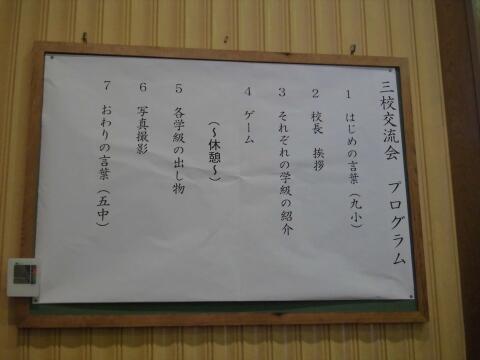 三校交流会　プログラム
1　はじめの言葉（九小）
2　校長　挨拶
3　それぞれの学級の紹介
4　ゲーム
（～休憩～）
5　各学級の出し物
6　写真撮影
7　おわりの言葉（五中）